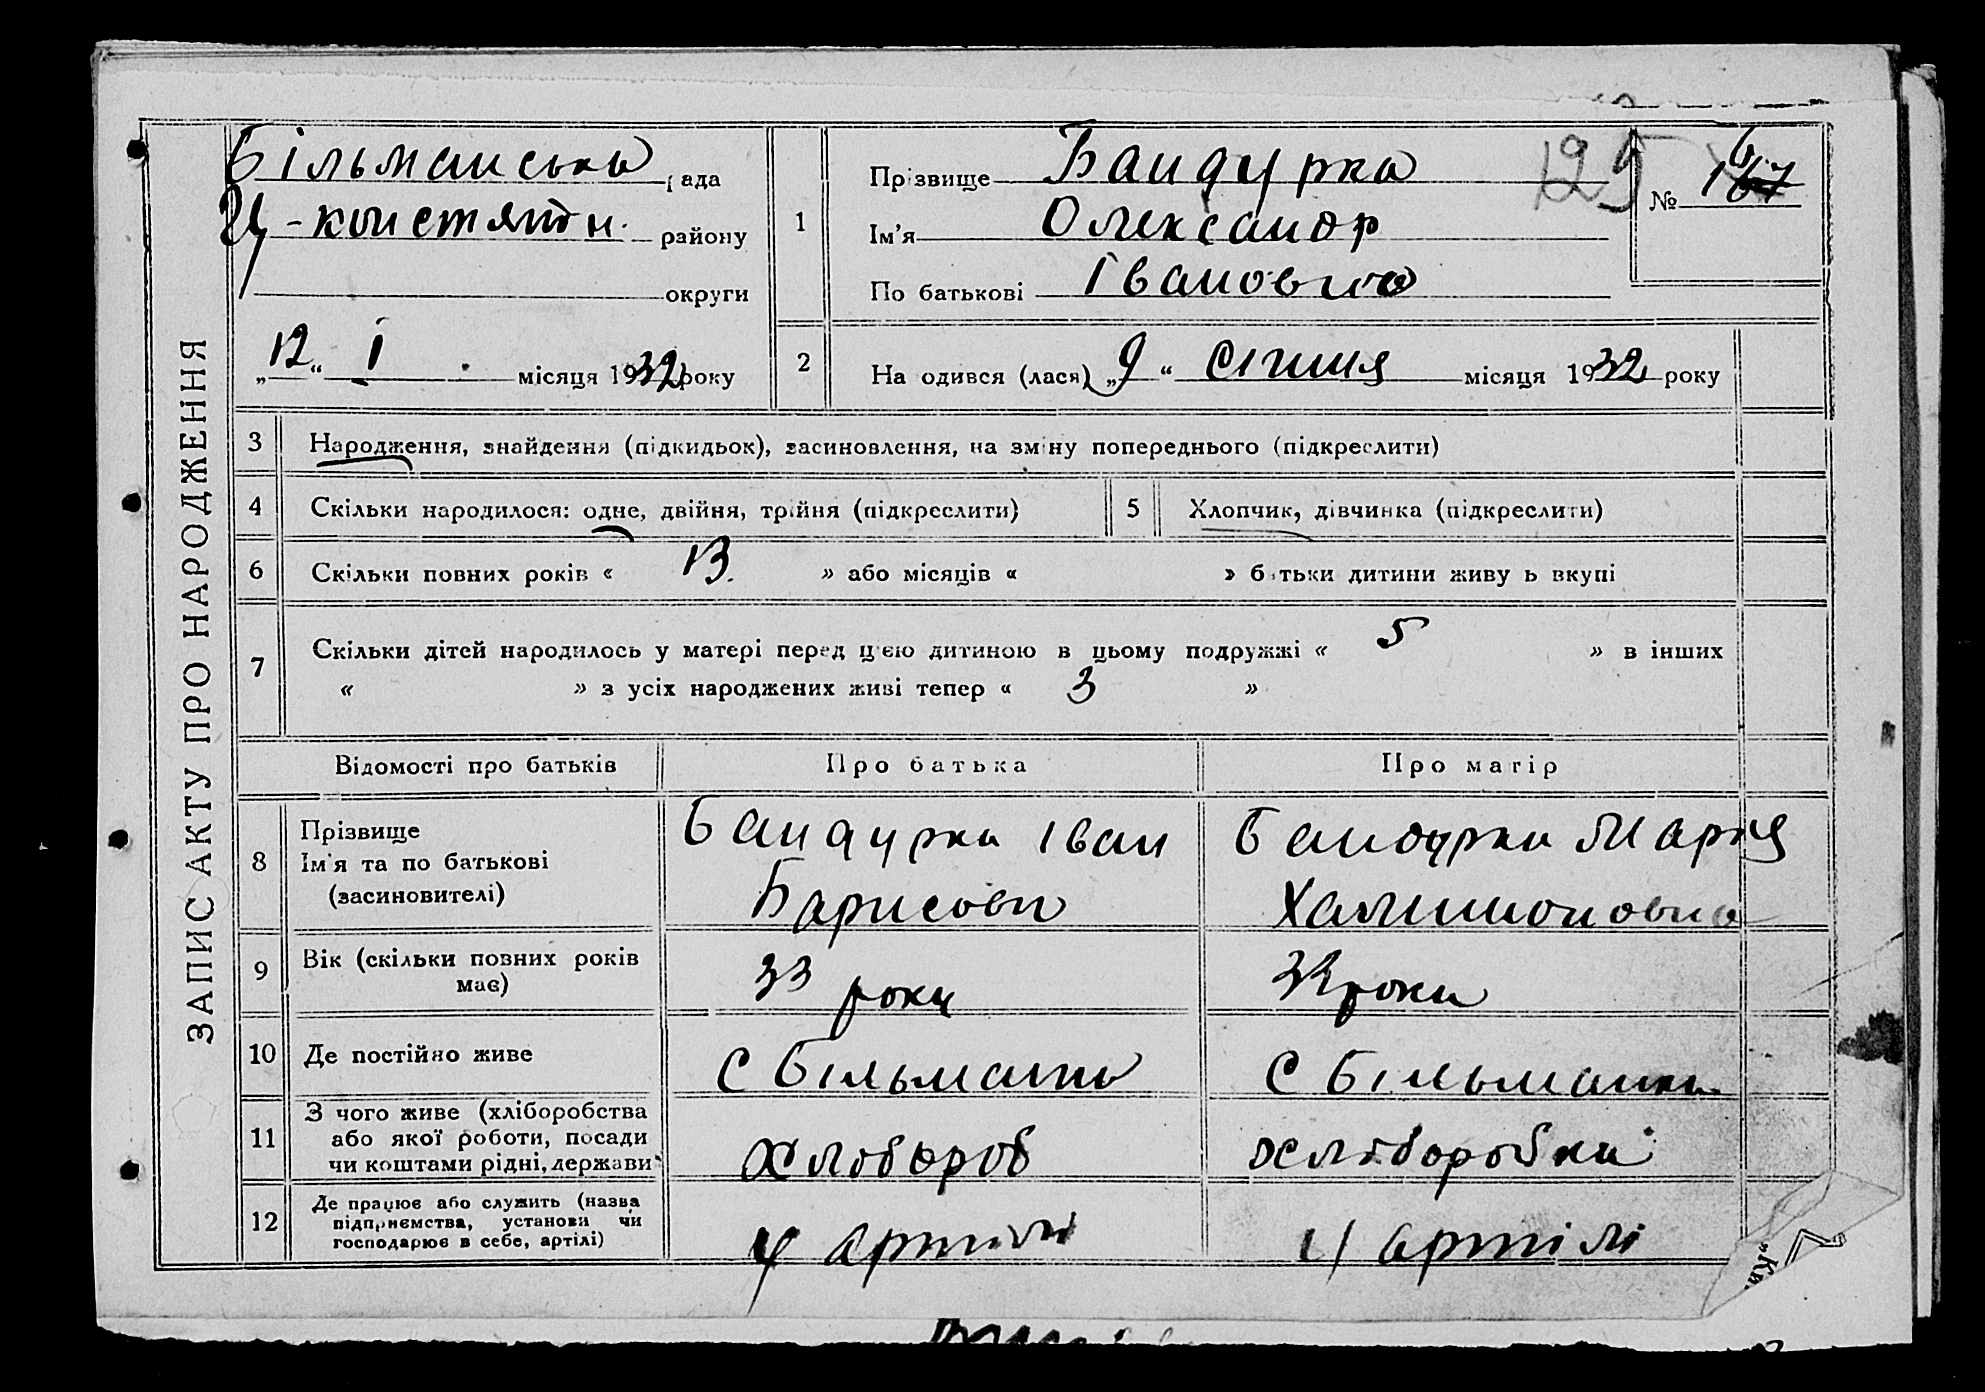 ЗАПИС АКТУ ПРО НАРОДЖЕННЯ
Більманська рада
Ц-констянтин. району
округи
„12“ I місяця 1932 року
1
Прізвище Бандурка
Ім'я Олександр
По батькові Іванович
125
№
2
На одився (лася) „9“ січния місяця 1932 року
3 Народження, знайдення (підкидьок), засиновлення, на зміну попереднього (підкреслити)
4 Скільки народилося: одне, двійня, трійня (підкреслити)
5 Хлопчик, дівчинка (підкреслити)
6 Скільки повних років « 13. » або місяців « » батьки дитини живу ь вкупі
7 Скільки дітей народилось у матері перед цією дитиною в цьому подружжі « 5 » в інших
« » з усіх народжених живі тепер « 3 »
Відомості про батьків Про батька Про матір
8 Прізвище
Ім'я та по батькові
(засиновителі)
Бандурка Іван
Барисови
Бандурка Мария
Халимоновна
9 Вік (скільки повних років
має)
33 роки
роки
10 Де постійно живе
С Більманка
С Більманка
11 З чого живе (хліборобства
або якої роботи, посади
чи коштами рідні, держави
Хлобороб
хлоборобка
12 Де працює або служить (назва
підприємства, установи чи
господарює в себе, артілі)
у артілі
у артілі
„Ки